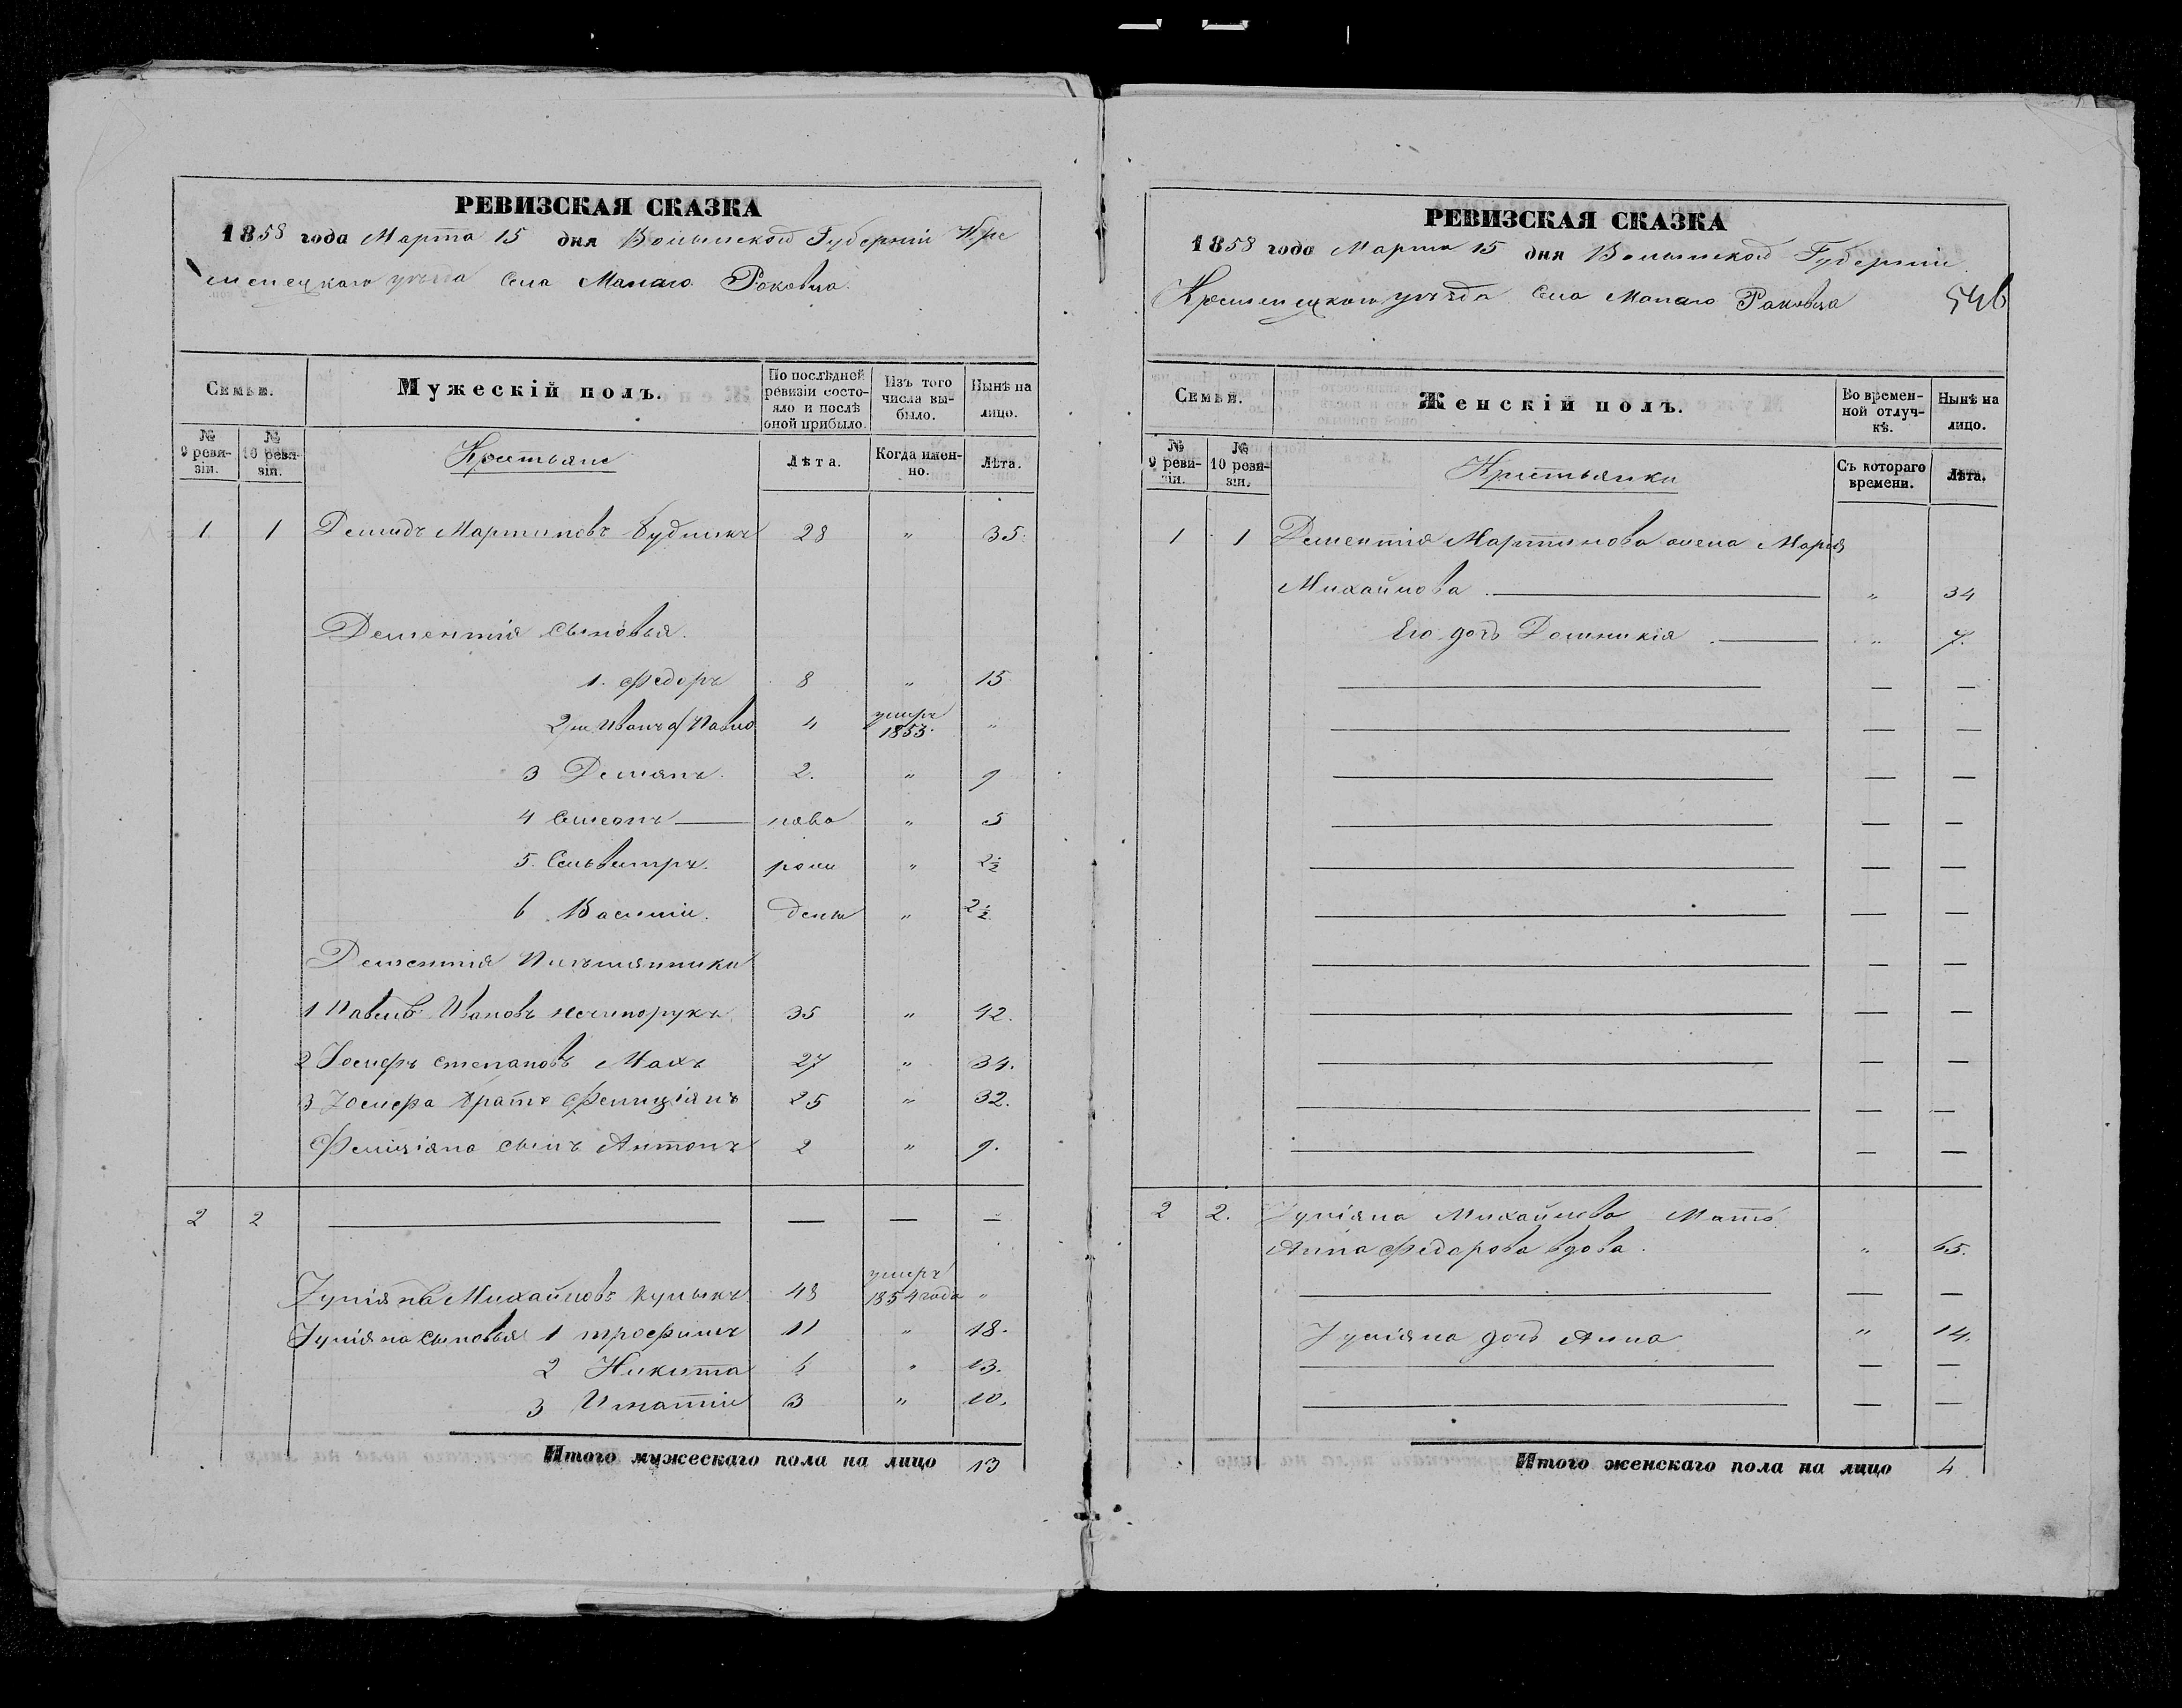 РЕВИЗСКАЯ СКАЗКА
1858 года Марта 15 дня Волынской Губерніи Кре
менецкаго уѣзда Села Малаго Раковца
Семьи. Мужескій полъ. По послѣдней ревизіи состояло и послѣ оной прибыло. Изъ того числа выбыло. Нынѣ на лицо.
№ 9 ревизіи. № 10 ревизіи. Крестьяне Лѣта. Когда именно. Лѣта.
1 1 Демидъ Мартиновъ Будникъ 28 " 35.
Дементія сыновья.
1. Федоръ 8 " 15
2 Иванъ Павло 4 умеръ 1853. "
3 Демянъ. 2. " 9
4 Симеонъ — ново " 5
5. Сильвестръ. рож " 2½
6 Василій. дены " 2½
Дементія Племянники
1 Павелъ Ивановъ Нечипорукъ 35 " 42.
2 Іосифъ Степановъ Махъ 27 " 34.
3 Іосифа братъ Фелиціянъ 25 " 32.
Фелиціяна сынъ Антонъ 2 " 9.
2 2 — — — —
Іуліянъ Михайловъ Кулыкъ 48 умеръ 1854 года "
Іуліяна сыновья 1 трофимъ 11 " 18.
2 Никита 6 " 13.
3 Игнатій 3 " 10.
Итого мужескаго пола на лицо 13
РЕВИЗСКАЯ СКАЗКА
1858 года Марта 15 дня Волынской Губерніи
Кременецкаго уѣзда Села Малаго Раковца 546
Семьи. Женскій полъ. Во временной отлучкѣ. Нынѣ на лицо.
№ 9 ревизіи. № 10 ревизіи. Крестьянки Съ котораго времени. Лѣта.
1 1 Дементія Мартинова жена Марія
Михайлова. — " 34
Его дочь Домникія — " 7.
2 2. Іуліяна Михайлова Мать
Анна Федорова вдова. " 65.
Іуліяна дочь Анна " 14.
Итого женскаго пола на лицо 4